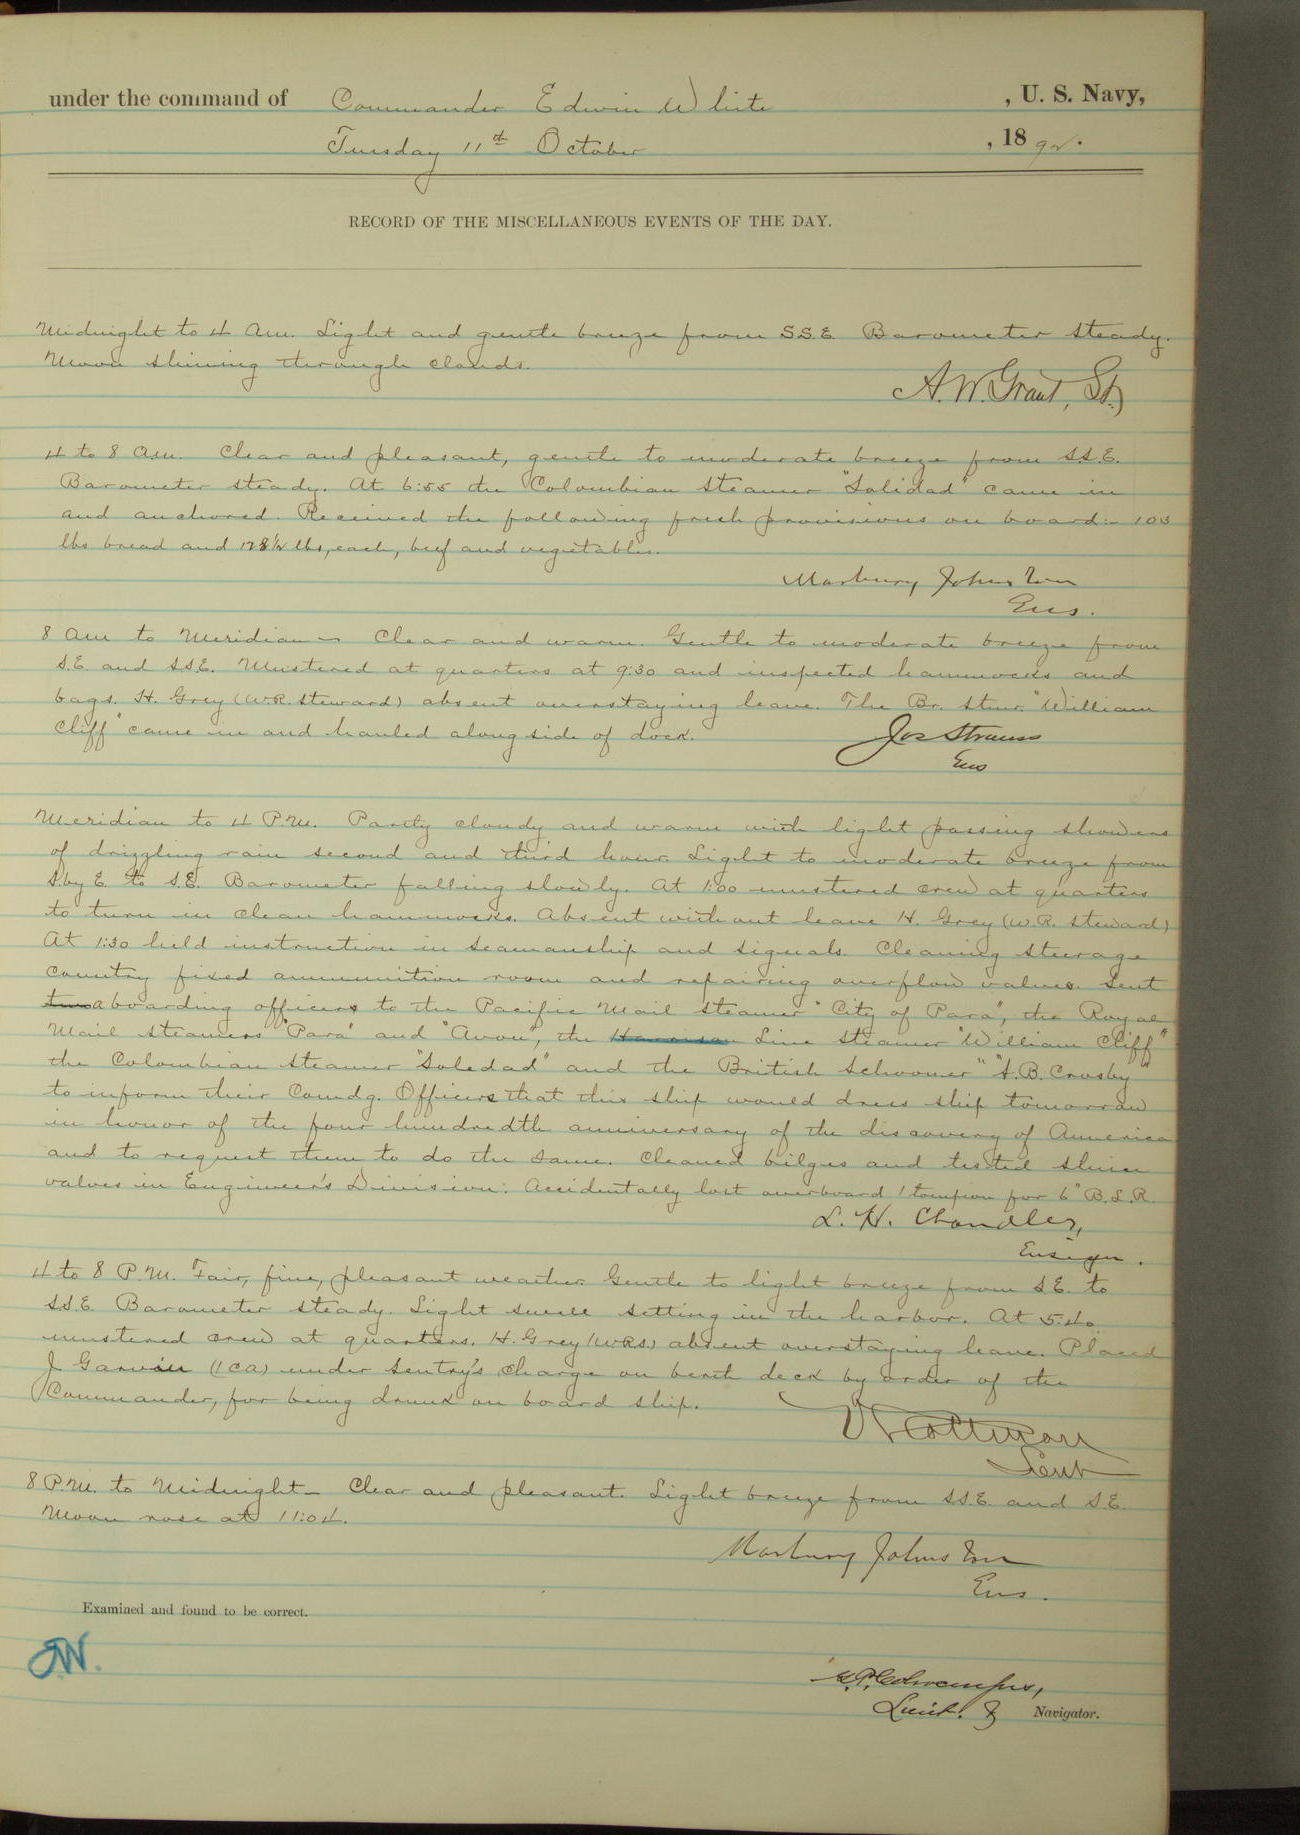 under the command of Commander Edwin White , U. S. Navy,
Tuesday 11th October , 1892.
RECORD OF THE MISCELLANEOUS EVENTS OF THE DAY.
Midnight to 4 Am. Light and gentle breeze from S.S.E. Barometer steady.
Moon shining through clouds.
A. W. Grant,
4 to 8 a.m. Clear and pleasant, gentle to moderate breeze from S.S.E.
Barometer steady. At 6:55 the Colombian steamer "Solidad" came in
and anchored. Received the following fresh provisions on board:- 103
lbs bread and 128½ lbs, each, beef and vegetables.
Marbury Johnston
Ens.
8 am to Meridian - Clear and warm. Gentle to moderate breeze from
S.E. and S.S.E. Mustered at quarters at 9:30 and inspected hammocks and
bags. H. Grey (W.R. Steward) absent overstaying leave. The Br. stmr. "William
Cliff" came in and hauled along side of dock.
Jos Strauss
Ens
Meridian to 4 P.M. Partly cloudy and warm with light passing showers
of drizzling rain second and third hour. Light to moderate breeze from
S. by E. to S.E. Barometer falling slowly. At 1:00 mustered crew at quarters
to turn in clean hammocks. Absent without leave H. Grey (W.R. Steward)
At 1:30 held instruction in seamanship and signals. Cleaning steerage
country fixed ammunition room and repairing overflow valves. Sent
two a boarding officers to the Pacific Mail Steamer "City of Para", the Royal
Mail steamers "Para" and "Avon", the Harrison Line steamer "William Cliff"
the Colombian steamer "Soledad" and the British Schooner "S.B. Crosby"
to inform their Comdg. Officers that this ship would dress ship tomorrow
in honor of the four hundredth anniversary of the discovery of America
and to request them to do the same. Cleaned bilges and tested sluice
valves in Engineer's Division. Accidentally lost overboard 1 tompion for 6" B.L.R.
L. H. Chandler,
Ensign.
4 to 8 P.M. Fair, fine, pleasant weather. Gentle to light breeze from S.E. to
S.S.E. Barometer steady. Light swell setting in the harbor. At 5:40
mustered crew at quarters. H. Grey (W.R.S.) absent overstaying leave. Placed
J Garvin (1 CA) under sentry's charge on berth deck by order of the
Commander, for being drunk on board ship.
Lieut
8 P.M. to Midnight - Clear and pleasant. Light breeze from S.S.E. and S.E.
Moon rose at 11:04.
Marbury Johnston
Ens.
Examined and found to be correct.
EW.
Lieut. & Navigator.